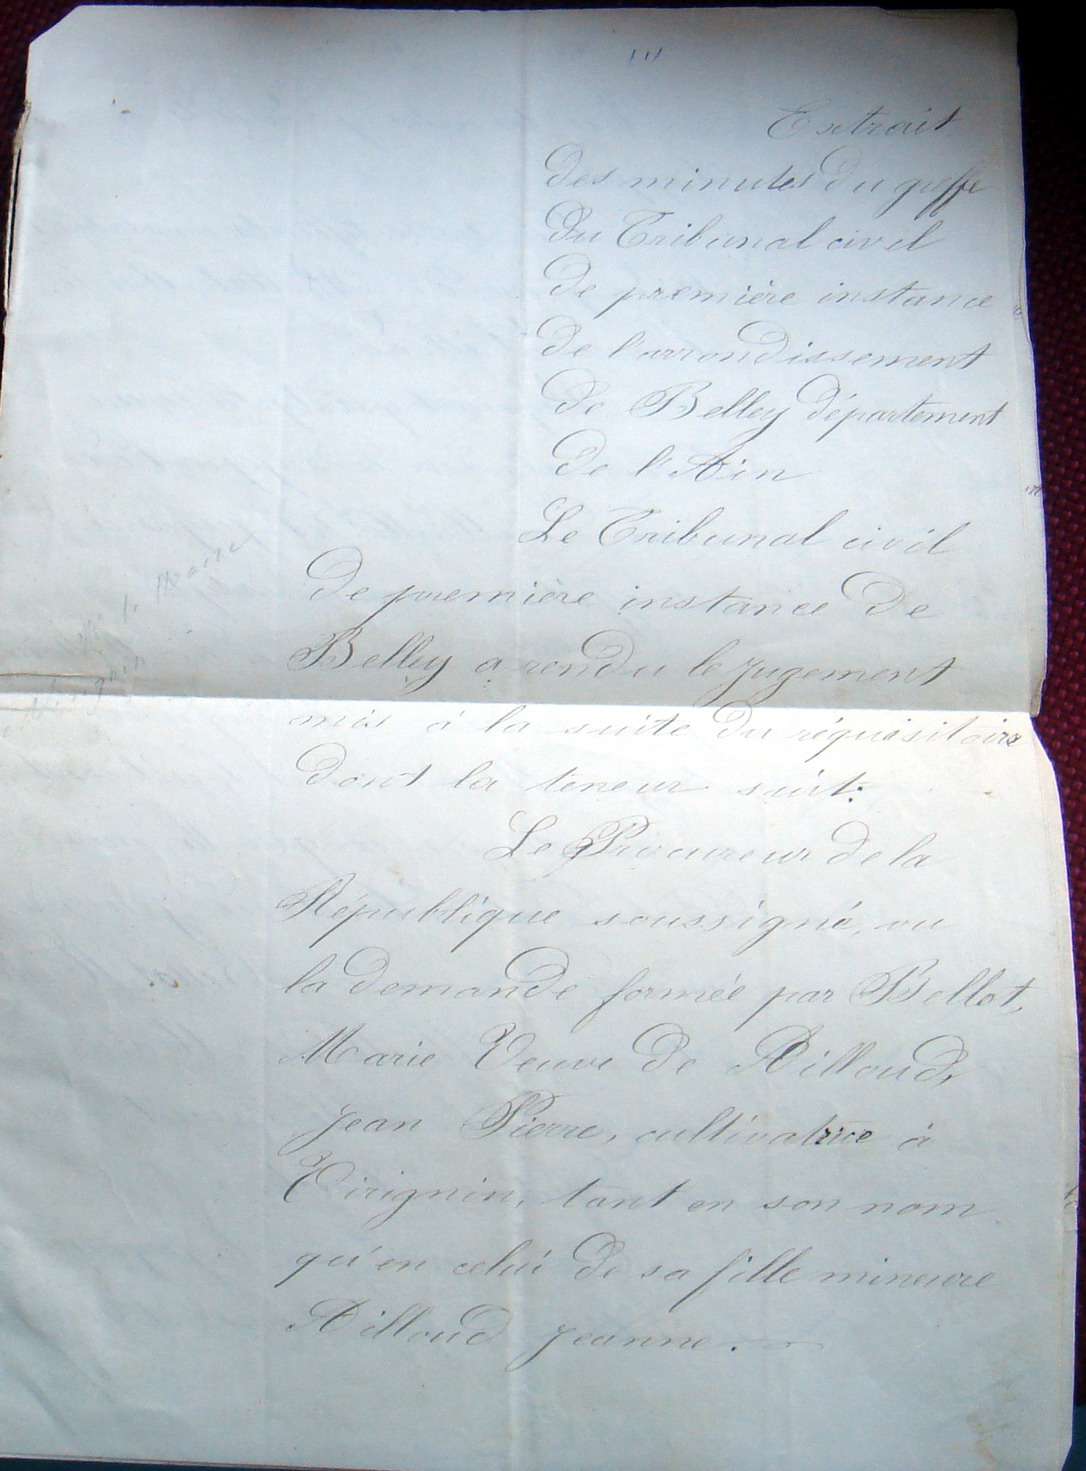 Extrait
des minutes du greffe
du Tribunal civil
de première instance
de l'arrondissement
de Belley département
de l'Ain
Le Tribunal civil
de première instance de
Belley a rendu le jugement
mis à la suite du réquisitoire
dont la teneur suit:
Le Procureur de la
République soussigné, vu
la demande formée par Bellot,
Marie Veuve de Rilloud,
Jean Pierre, cultivatrice à
Virignin, tant en son nom
qu'en celui de sa fille mineure
Rilloud Jeanne.
le Maire
Virignin